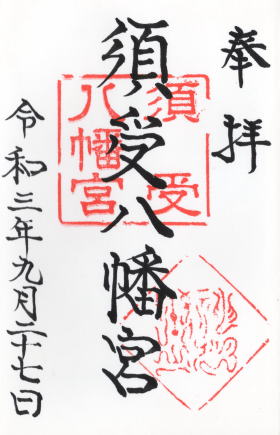 奉拝
須受八幡宮
須受
八幡宮
令和三年九月二十七日